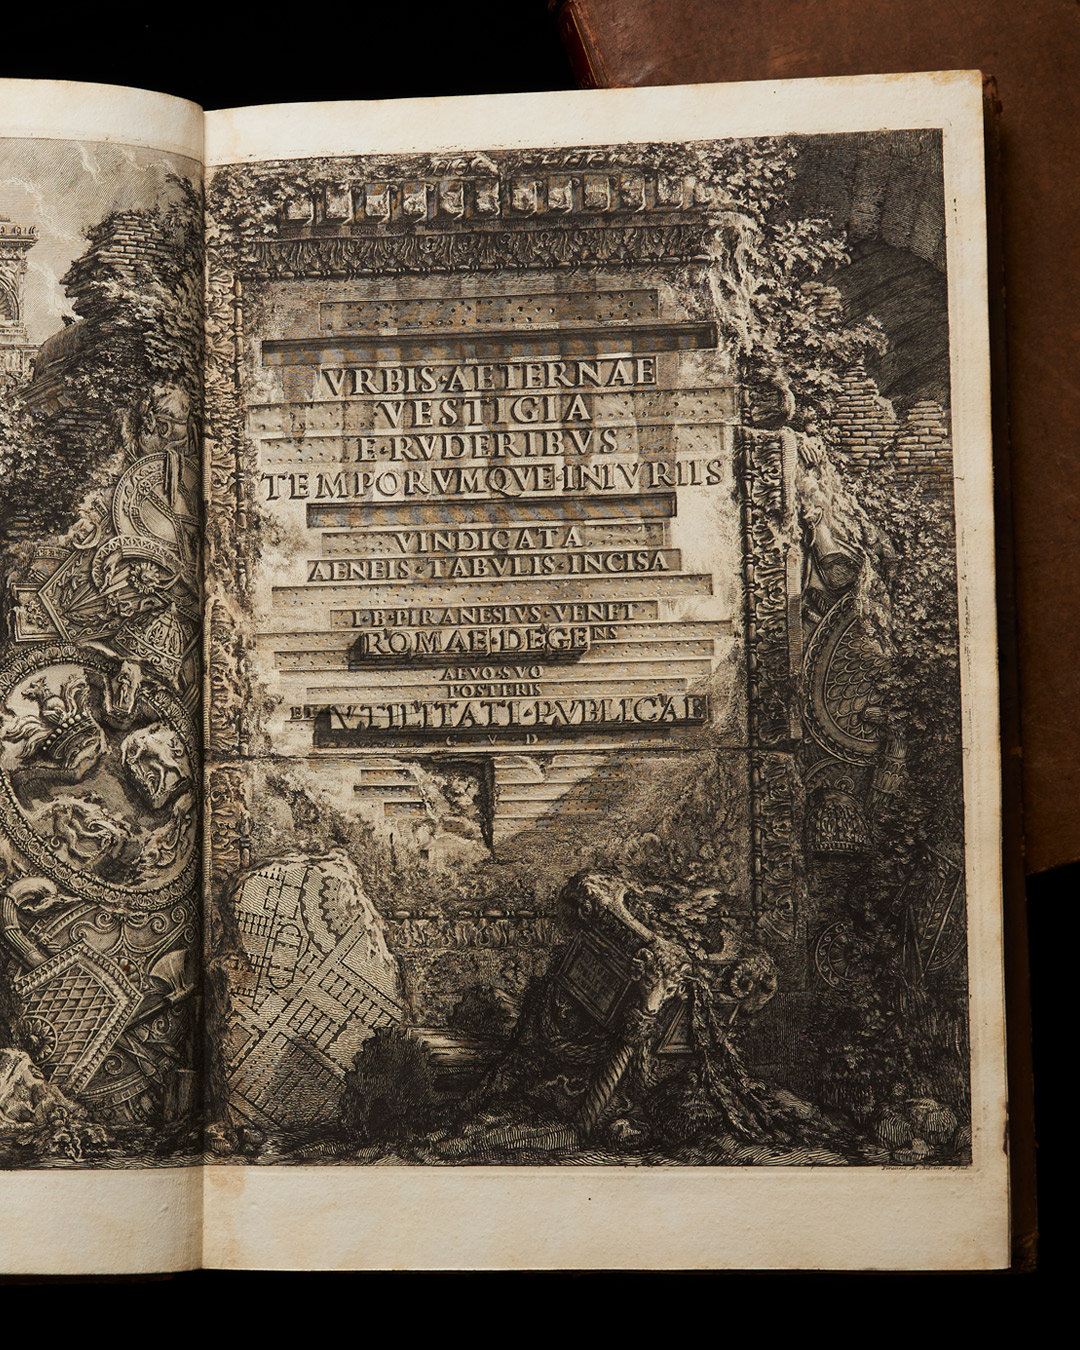 VRBIS·AETERNAE
VESTIGIA
E·RVDERIBVS
TEMPORVMQVE·INIVRIIS
VINDICATA
AENEIS·TABVLIS·INCISA
I·B·PIRANESIVS·VENET
ROMAE·DEGENS
AEVO·SVO
POSTERIS
ET VTILITATI·PVBLICAE
C V D